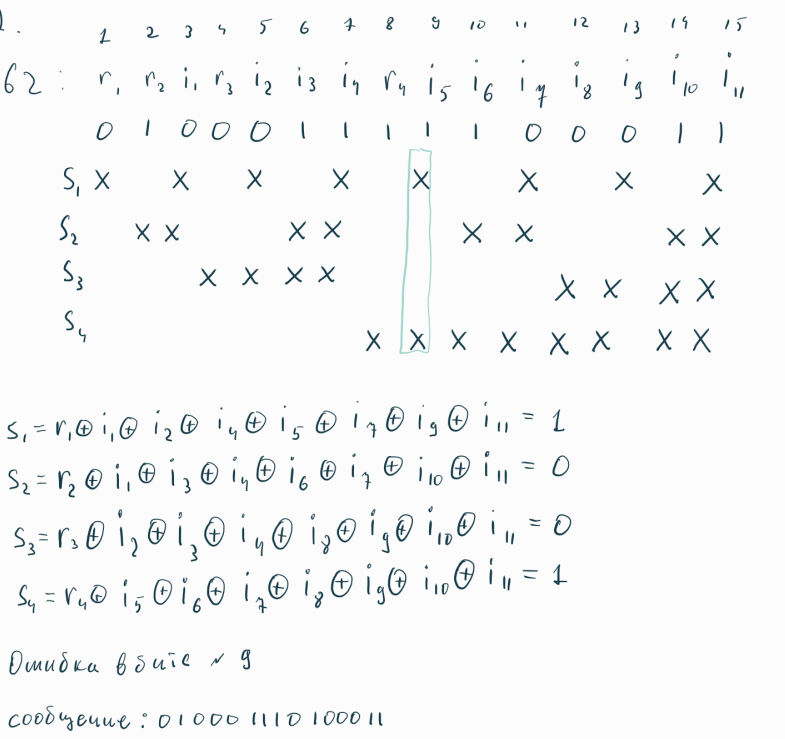 1 2 3 4 5 6 7 8 9 10 11 12 13 14 15
62: r₁ r₂ i₁ r₃ i₂ i₃ i₄ r₄ i₅ i₆ i₇ i₈ i₉ i₁₀ i₁₁
0 1 0 0 0 1 1 1 1 1 0 0 0 1 1
S₁ X X X X X X X X
S₂ X X X X X X X X
S₃ X X X X X X X X
S₄ X X X X X X X X
S₁ = r₁ ⊕ i₁ ⊕ i₂ ⊕ i₄ ⊕ i₅ ⊕ i₇ ⊕ i₉ ⊕ i₁₁ = 1
S₂ = r₂ ⊕ i₁ ⊕ i₃ ⊕ i₄ ⊕ i₆ ⊕ i₇ ⊕ i₁₀ ⊕ i₁₁ = 0
S₃ = r₃ ⊕ i₂ ⊕ i₃ ⊕ i₄ ⊕ i₈ ⊕ i₉ ⊕ i₁₀ ⊕ i₁₁ = 0
S₄ = r₄ ⊕ i₅ ⊕ i₆ ⊕ i₇ ⊕ i₈ ⊕ i₉ ⊕ i₁₀ ⊕ i₁₁ = 1
Ошибка в бите № 9
сообщение: 010001110100011